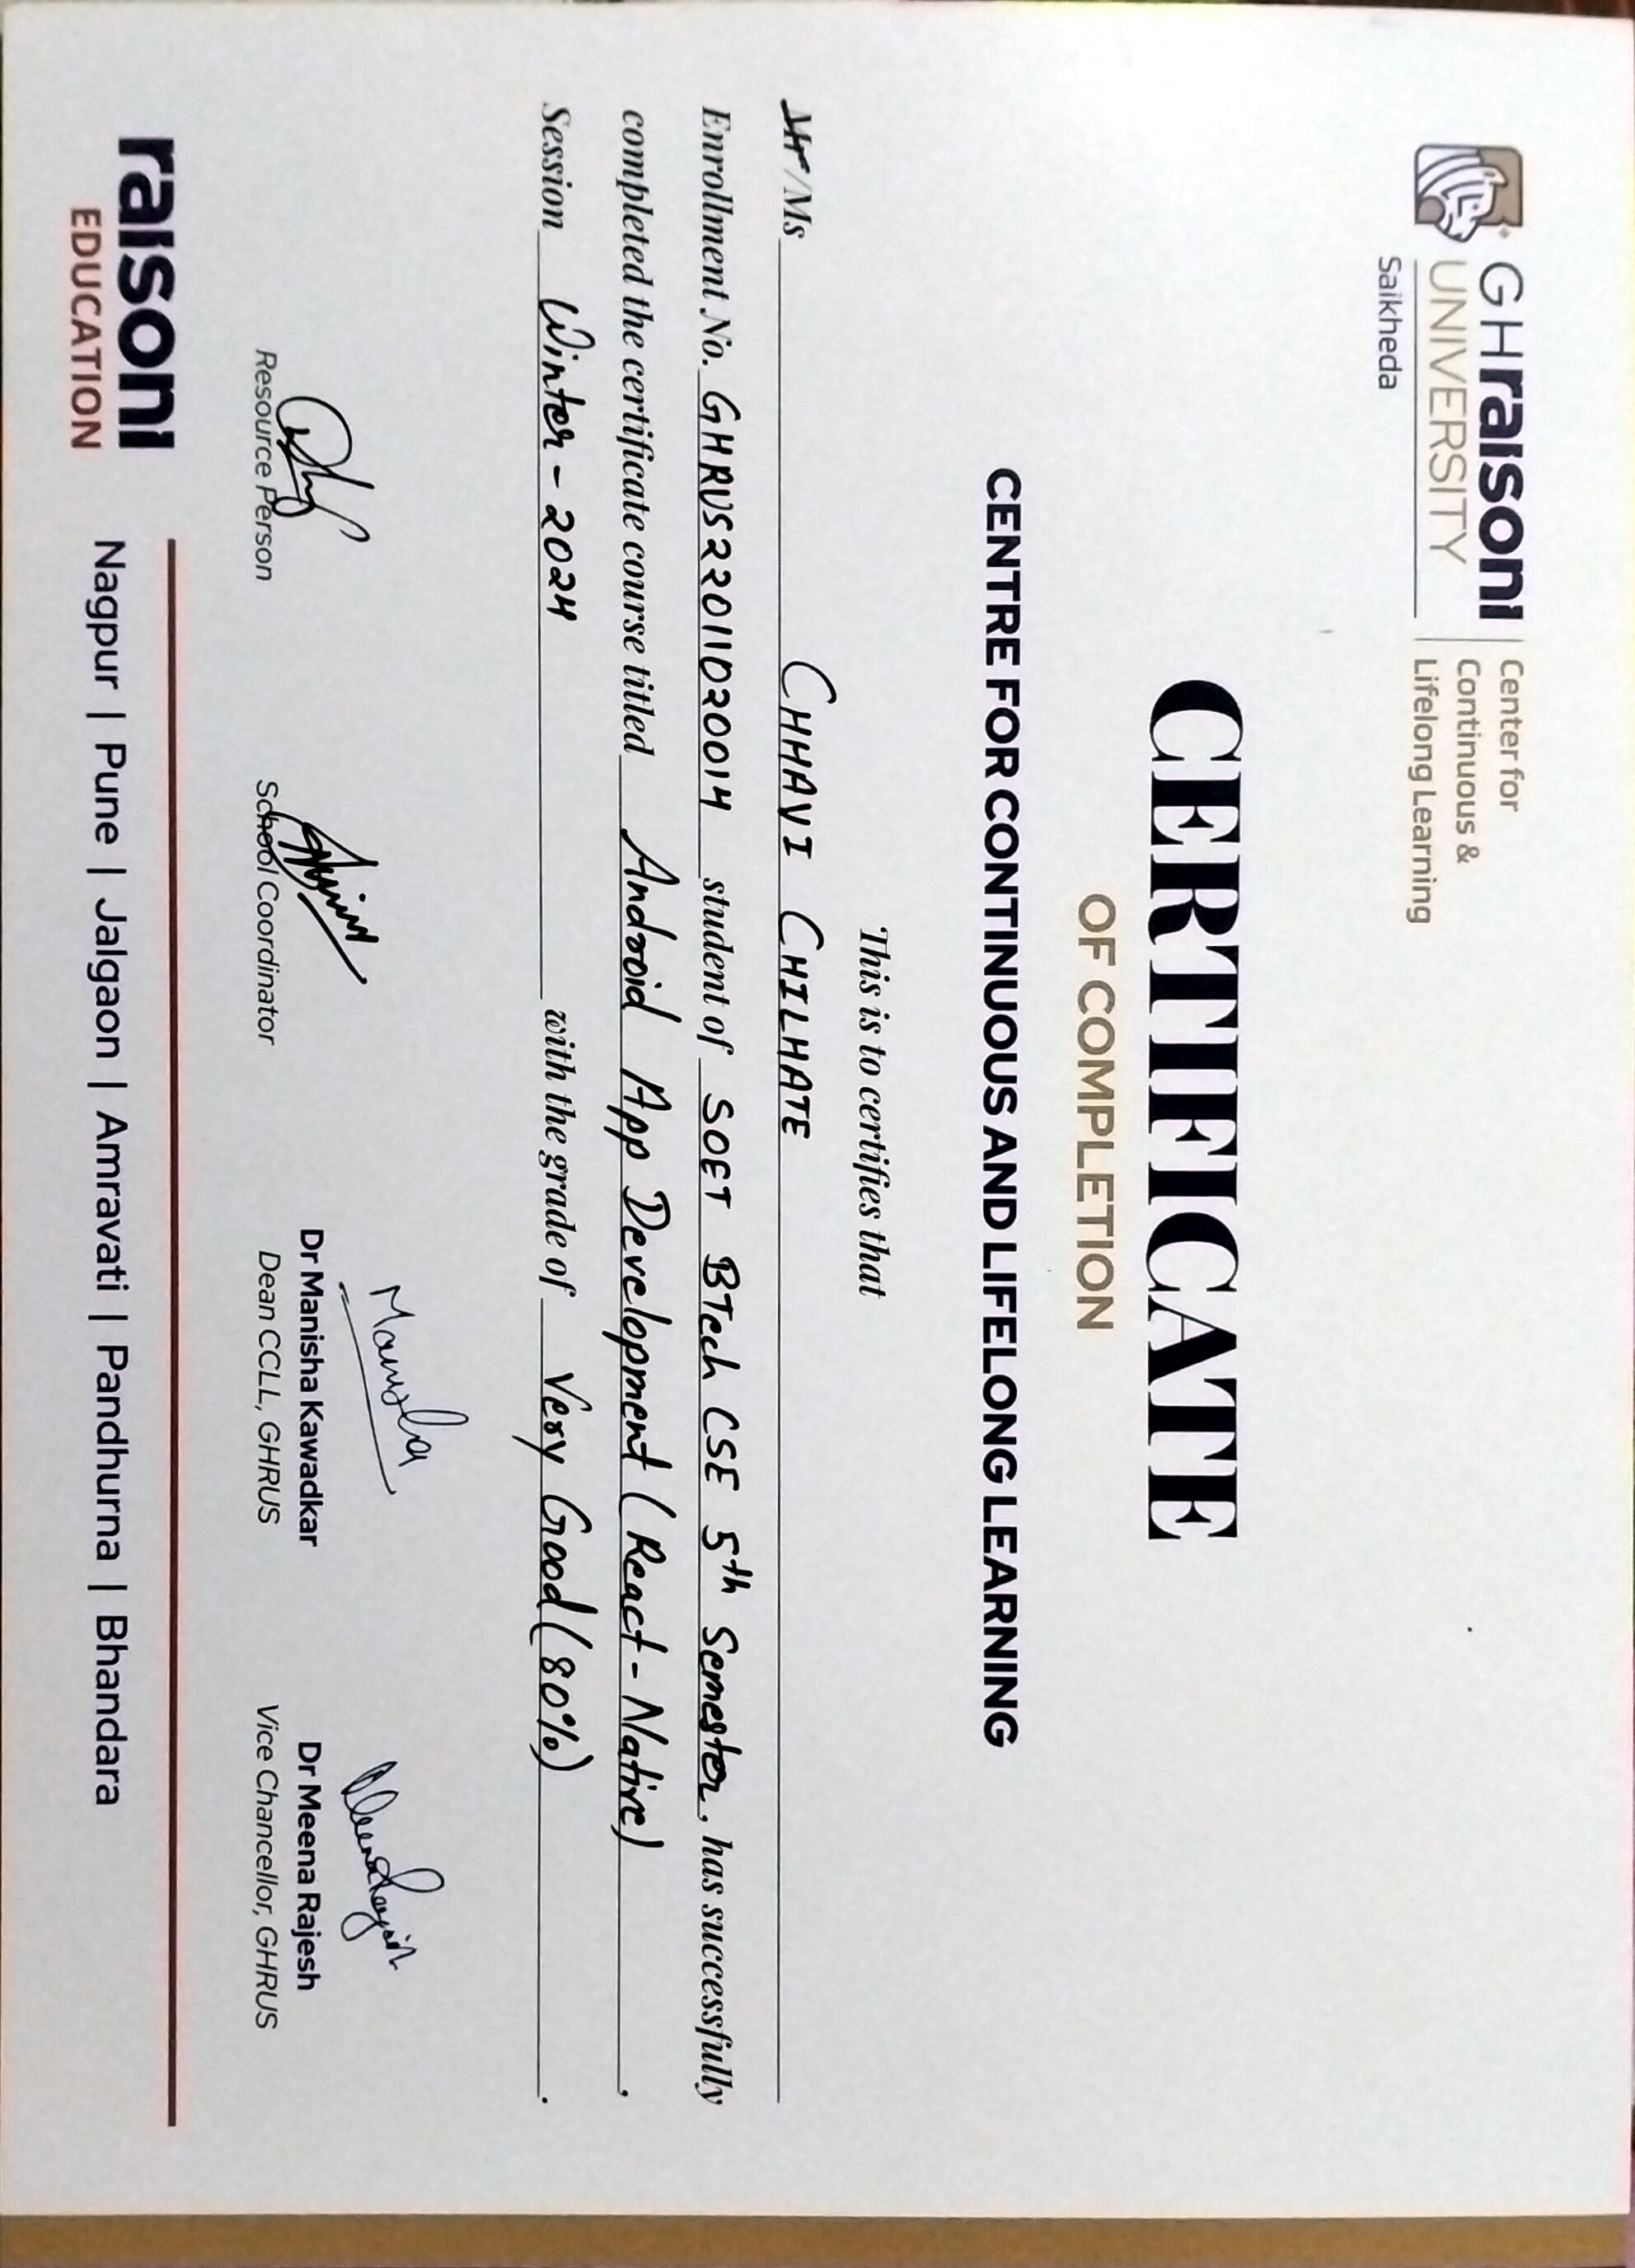 GHraisoni
UNIVERSITY
Saikheda
Center for
Continuous &
Lifelong Learning
CERTIFICATE
OF COMPLETION
CENTRE FOR CONTINUOUS AND LIFELONG LEARNING
This is to certifies that
Mr/Ms CHHAVI CHILHATE
Enrollment No. GHRUS22011020014 student of SOET BTech CSE 5th Semester, has successfully
completed the certificate course titled Android App Development (React-Native).
Session Winter-2024 with the grade of Very Good (80%).
Manisha
Meena Rajesh
Dr Manisha Kawadkar
Dr Meena Rajesh
Resource Person
School Coordinator
Dean CCLL, GHRUS
Vice Chancellor, GHRUS
raisoni
EDUCATION
Nagpur | Pune | Jalgaon | Amravati | Pandhurna | Bhandara